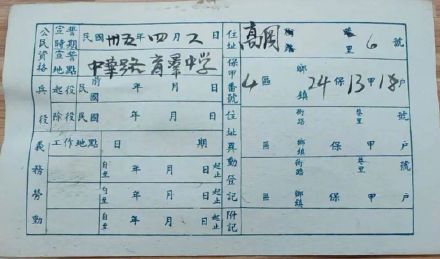 公民資格 宣誓時期 民國卅五年四月 日
宣誓地點 中華路育群中學
兵役 起役 民前國 年 月 日
除役 民 年 月 日
義務勞動 工作地點 日期
自至 年 月 日 起止
自至 年 月 日 起止
自至 年 月 日 起止
住址 街路 巷里 6號
保甲番號 4區 鄉鎮 24保13甲18戶
住址異動登記 街路 巷里 號
區 鄉鎮 保 甲 戶
街路 巷里 號
區 鄉鎮 保 甲 戶
附記